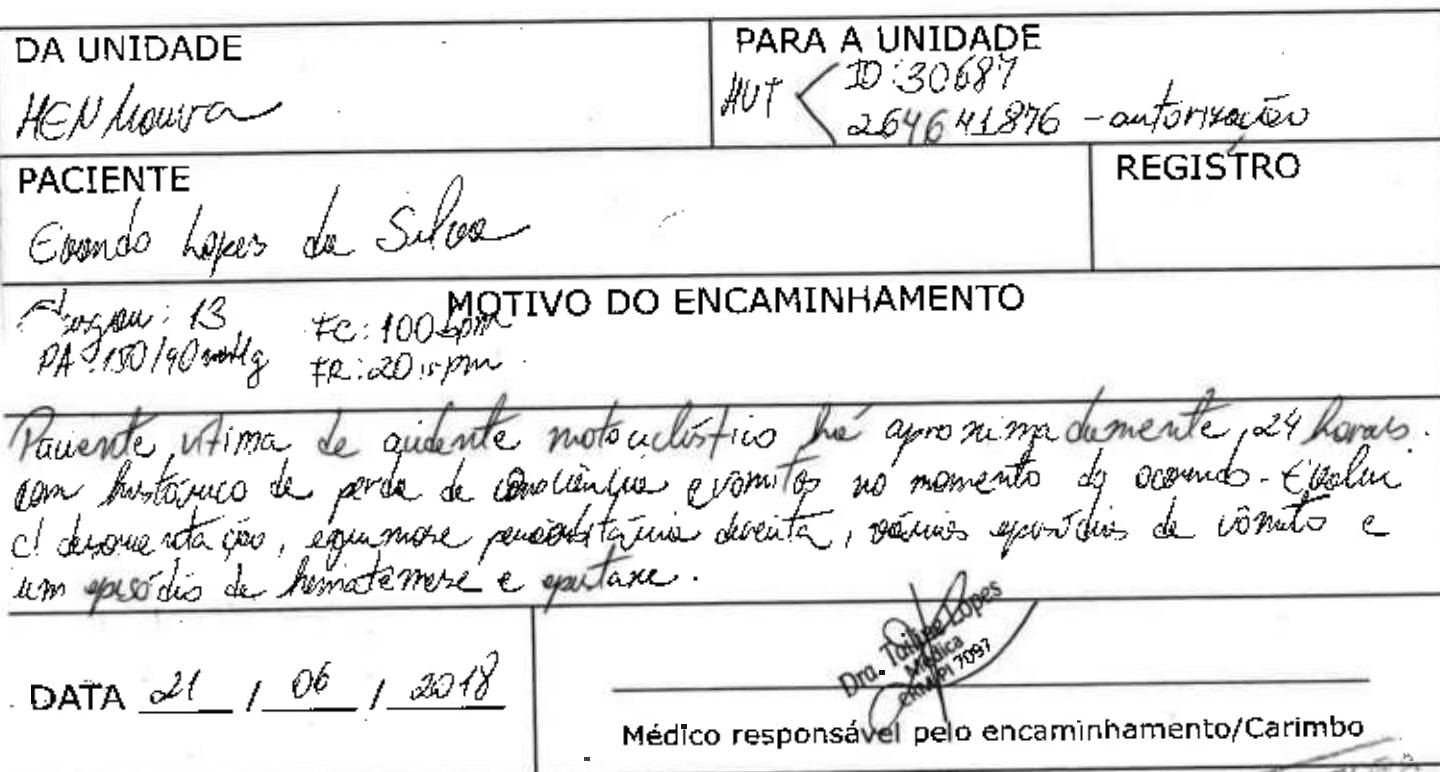 DA UNIDADE
HEN Moura
PARA A UNIDADE
HUT ID: 30687
264641876 - autorização
PACIENTE
Lopes da Silva
REGISTRO
MOTIVO DO ENCAMINHAMENTO
: 13 FC: 100 bpm
PA: 150/90 mmHg FR: 20 irpm
Paciente vítima de acidente motociclístico há aproximadamente, 24 horas.
com histórico de perda de consciência e vômitos no momento do ocorrido. Evolui
c/ desorientação, equimose periorbitária direita, vários episódios de vômito e
um episódio de hematemese e epistaxe.
DATA 21 / 06 / 2018
Dra. Lopes
Médica
CRM/PI 7097
Médico responsável pelo encaminhamento/Carimbo